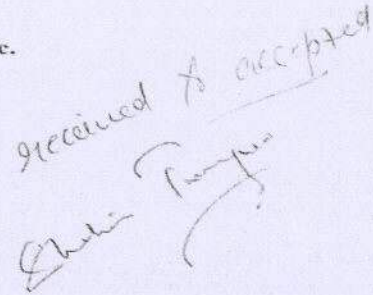 c.
received & accepted